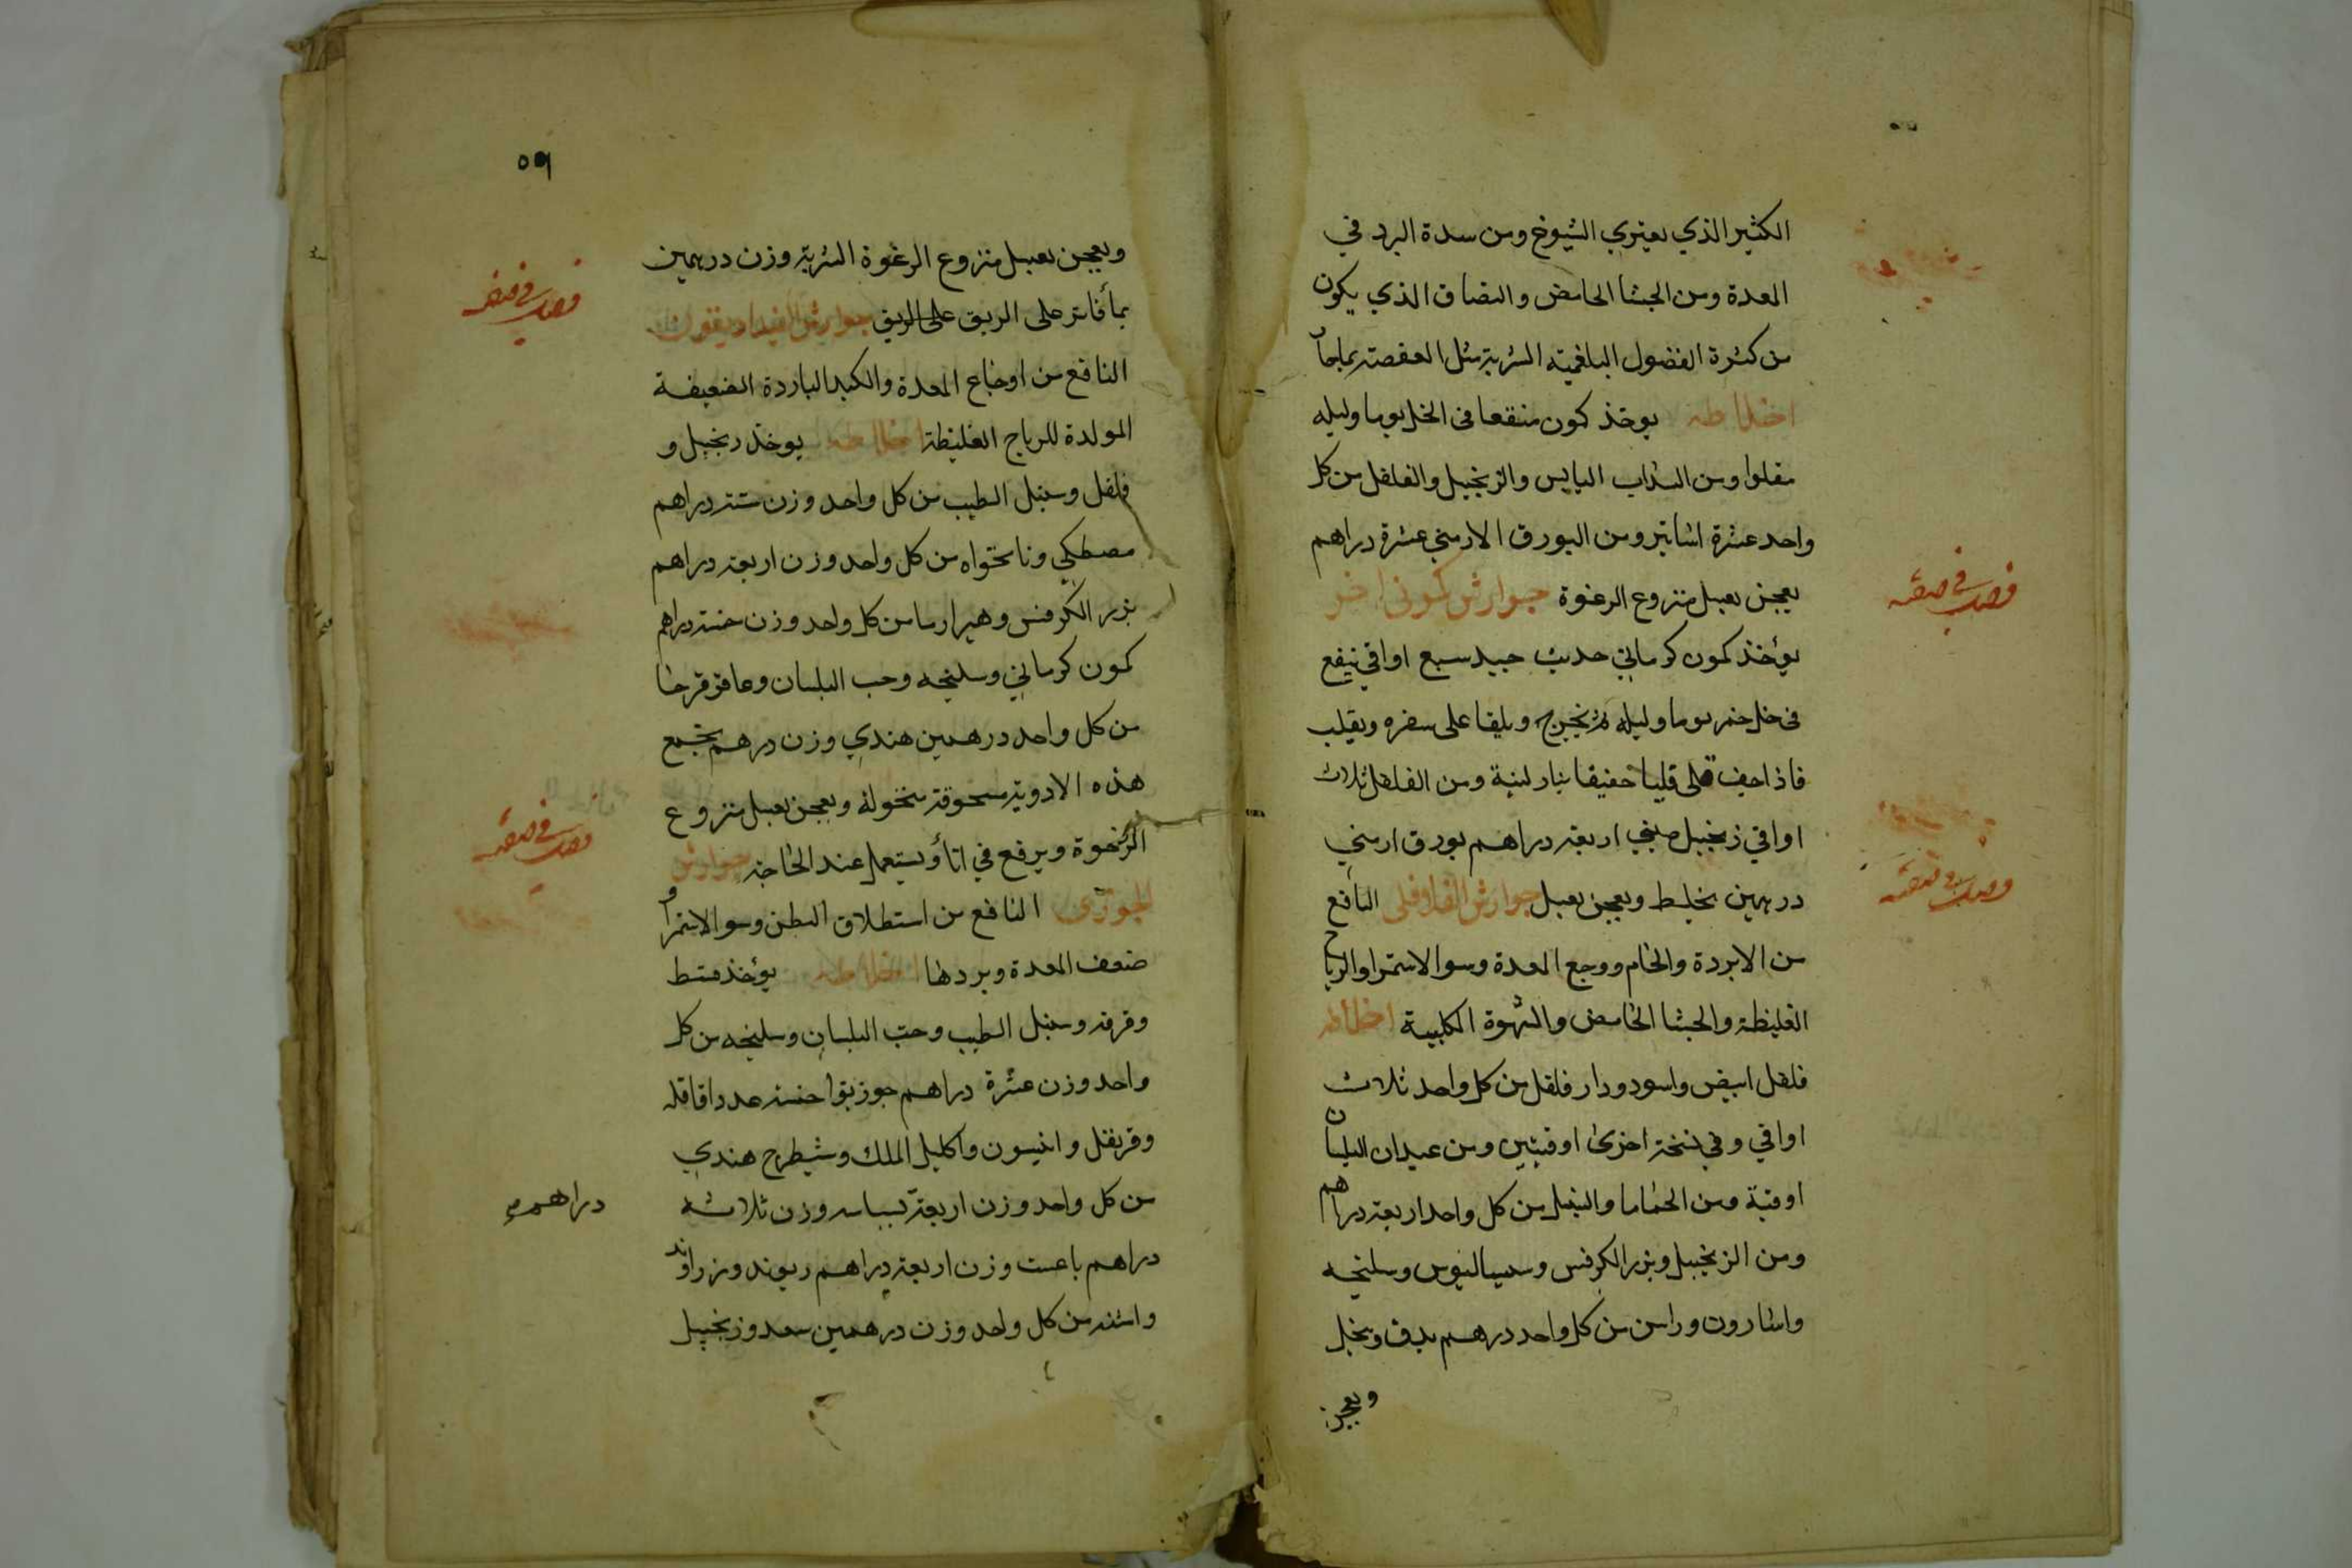 الكثير الذي يعتري الشيوخ ومن سدة البرد في
المعدة ومن الجشا الحامض والبصاق الذي يكون
من كثرة الفضول البلغمية الشربة مثل العفصة بماحا
اخلاطه يوخذ كمون منقعا في الخل يوما وليله
مقلوا ومن السداب اليابس والزنجبيل والفلفل من كل
واحد عشرة اساتير ومن البورق الارمني عشرة دراهم
يعجن بعسل منزوع الرغوة جوارش كموني اخر
يؤخذ كمون كرماني حديث جيد سبع اواقي ينقع
في خل خمر يوما وليله ثم يخرج ويلقا على سفره ويقلب
فاذا جف قلى قليا خفيفا بنار لينة ومن الفلفل ثلاث
اواقي زنجبيل صيني اربعة دراهم بورق ارمني
درهمين يخلط ويعجن بعسل جوارش الفلافلي النافع
من الابردة والخام ووجع المعدة وسو الاستمرا والرياح
الغليظة والجشا الحامض والشهوة الكلبية اخلاطه
فلفل ابيض واسود ودار فلفل من كل واحد ثلاث
اواقي وفي نسخة اخرى اوقيتين ومن عيدان البلسان
اوقية ومن الحماما والسنبل من كل واحد اربعة دراهم
ومن الزنجبيل وبزر الكرفس وسيساليوس وسليخه
واسارون وراسن من كل واحد درهم يدق وينخل
ويعجن
فصل في صفة
فصل في صفة
٥٩
ويعجن بعسل منزوع الرغوة الشربة وزن درهمين
بمأ فاتر على الريق على الريق جوارش
النافع من اوجاع المعدة والكبد الباردة الضعيفة
المولدة للرياح الغليظة اخلاطه يوخذ زنجبيل و
فلفل وسنبل الطيب من كل واحد وزن ستة دراهم
مصطكي ونانخواه من كل واحد وزن اربعة دراهم
بزر الكرفس من كل واحد وزن خمسة دراهم
كمون كرماني وسليخه وحب البلسان وعاقرقرحا
من كل واحد درهمين هندي وزن درهم يجمع
هذه الادوية مسحوقة منخولة ويعجن بعسل منزوع
الرغوة ويرفع في انأ ويستعمل عند الحاجة جوارش
الجوزي النافع من استطلاق البطن وسو الاستمرا و
ضعف المعدة وبردها اخلاطه يؤخذ قسط
وقرفه وسنبل الطيب وحب البلسان وسليخه من كل
واحد وزن عشرة دراهم جوزبوا خمسة عدد اقاقله
وقرنفل وانيسون واكليل الملك وشيطرج هندي
من كل واحد وزن اربعة بسباسه وزن ثلاثه
دراهم وزن اربعة دراهم ريوند وزراوند
واشنه من كل واحد وزن درهمين سعد وزنجبيل
فصل في صفة
فصل في صفة
دراهم